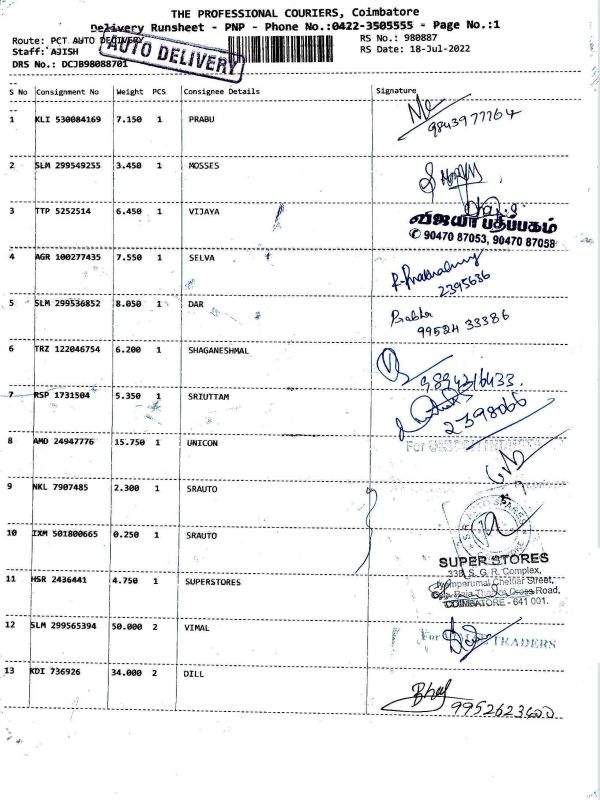 THE PROFESSIONAL COURIERS, Coimbatore
Delivery Runsheet - PNP - Phone No.:0422-3505555 - Page No.:1
Route: PCT AUTO DELIVERY RS No.: 980887
Staff: AJISH RS Date: 18-Jul-2022
DRS No.: DCJB98088701
AUTO DELIVERY
S No Consignment No Weight PCS Consignee Details Signature
1 KLI 530084169 7.150 1 PRABU
9843977764
2 SLM 299549255 3.450 1 MOSSES
3 TTP 5252514 6.450 1 VIJAYA
விஜயா பதிப்பகம்
90470 87053, 90470 87058
4 AGR 100277435 7.550 1 SELVA
2395636
5 SLM 299536852 8.050 1 DAR
Prabha
99524 33386
6 TRZ 122046754 6.200 1 SHAGANESHMAL
9894216433.
7 RSP 1731504 5.350 1 SRIUTTAM
2398066
8 AMD 24947776 15.750 1 UNICON
For
9 NKL 7907485 2.300 1 SRAUTO
10 IXM 501800665 0.250 1 SRAUTO
11 HSR 2436441 4.750 1 SUPERSTORES
SUPER STORES
33B, S. G. R. Complex,
Chettiar Street,
Road,
COIMBATORE - 641 001.
12 SLM 299565394 50.000 2 VIMAL
For TRADERS
13 KDI 736926 34.000 2 DILL
9952623600